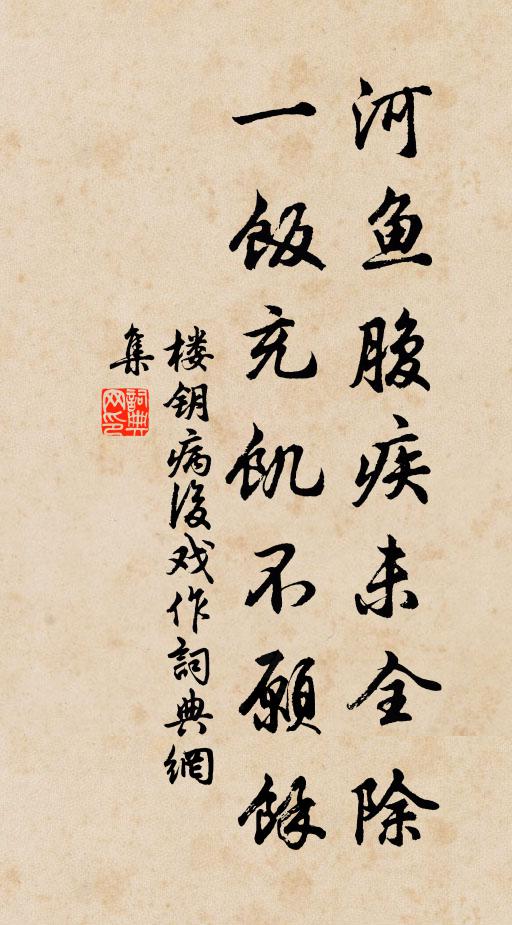 河鱼腹疾未全除
一饭充饥不愿馀
楼钥病后戏作詞典網
集
詞典网印